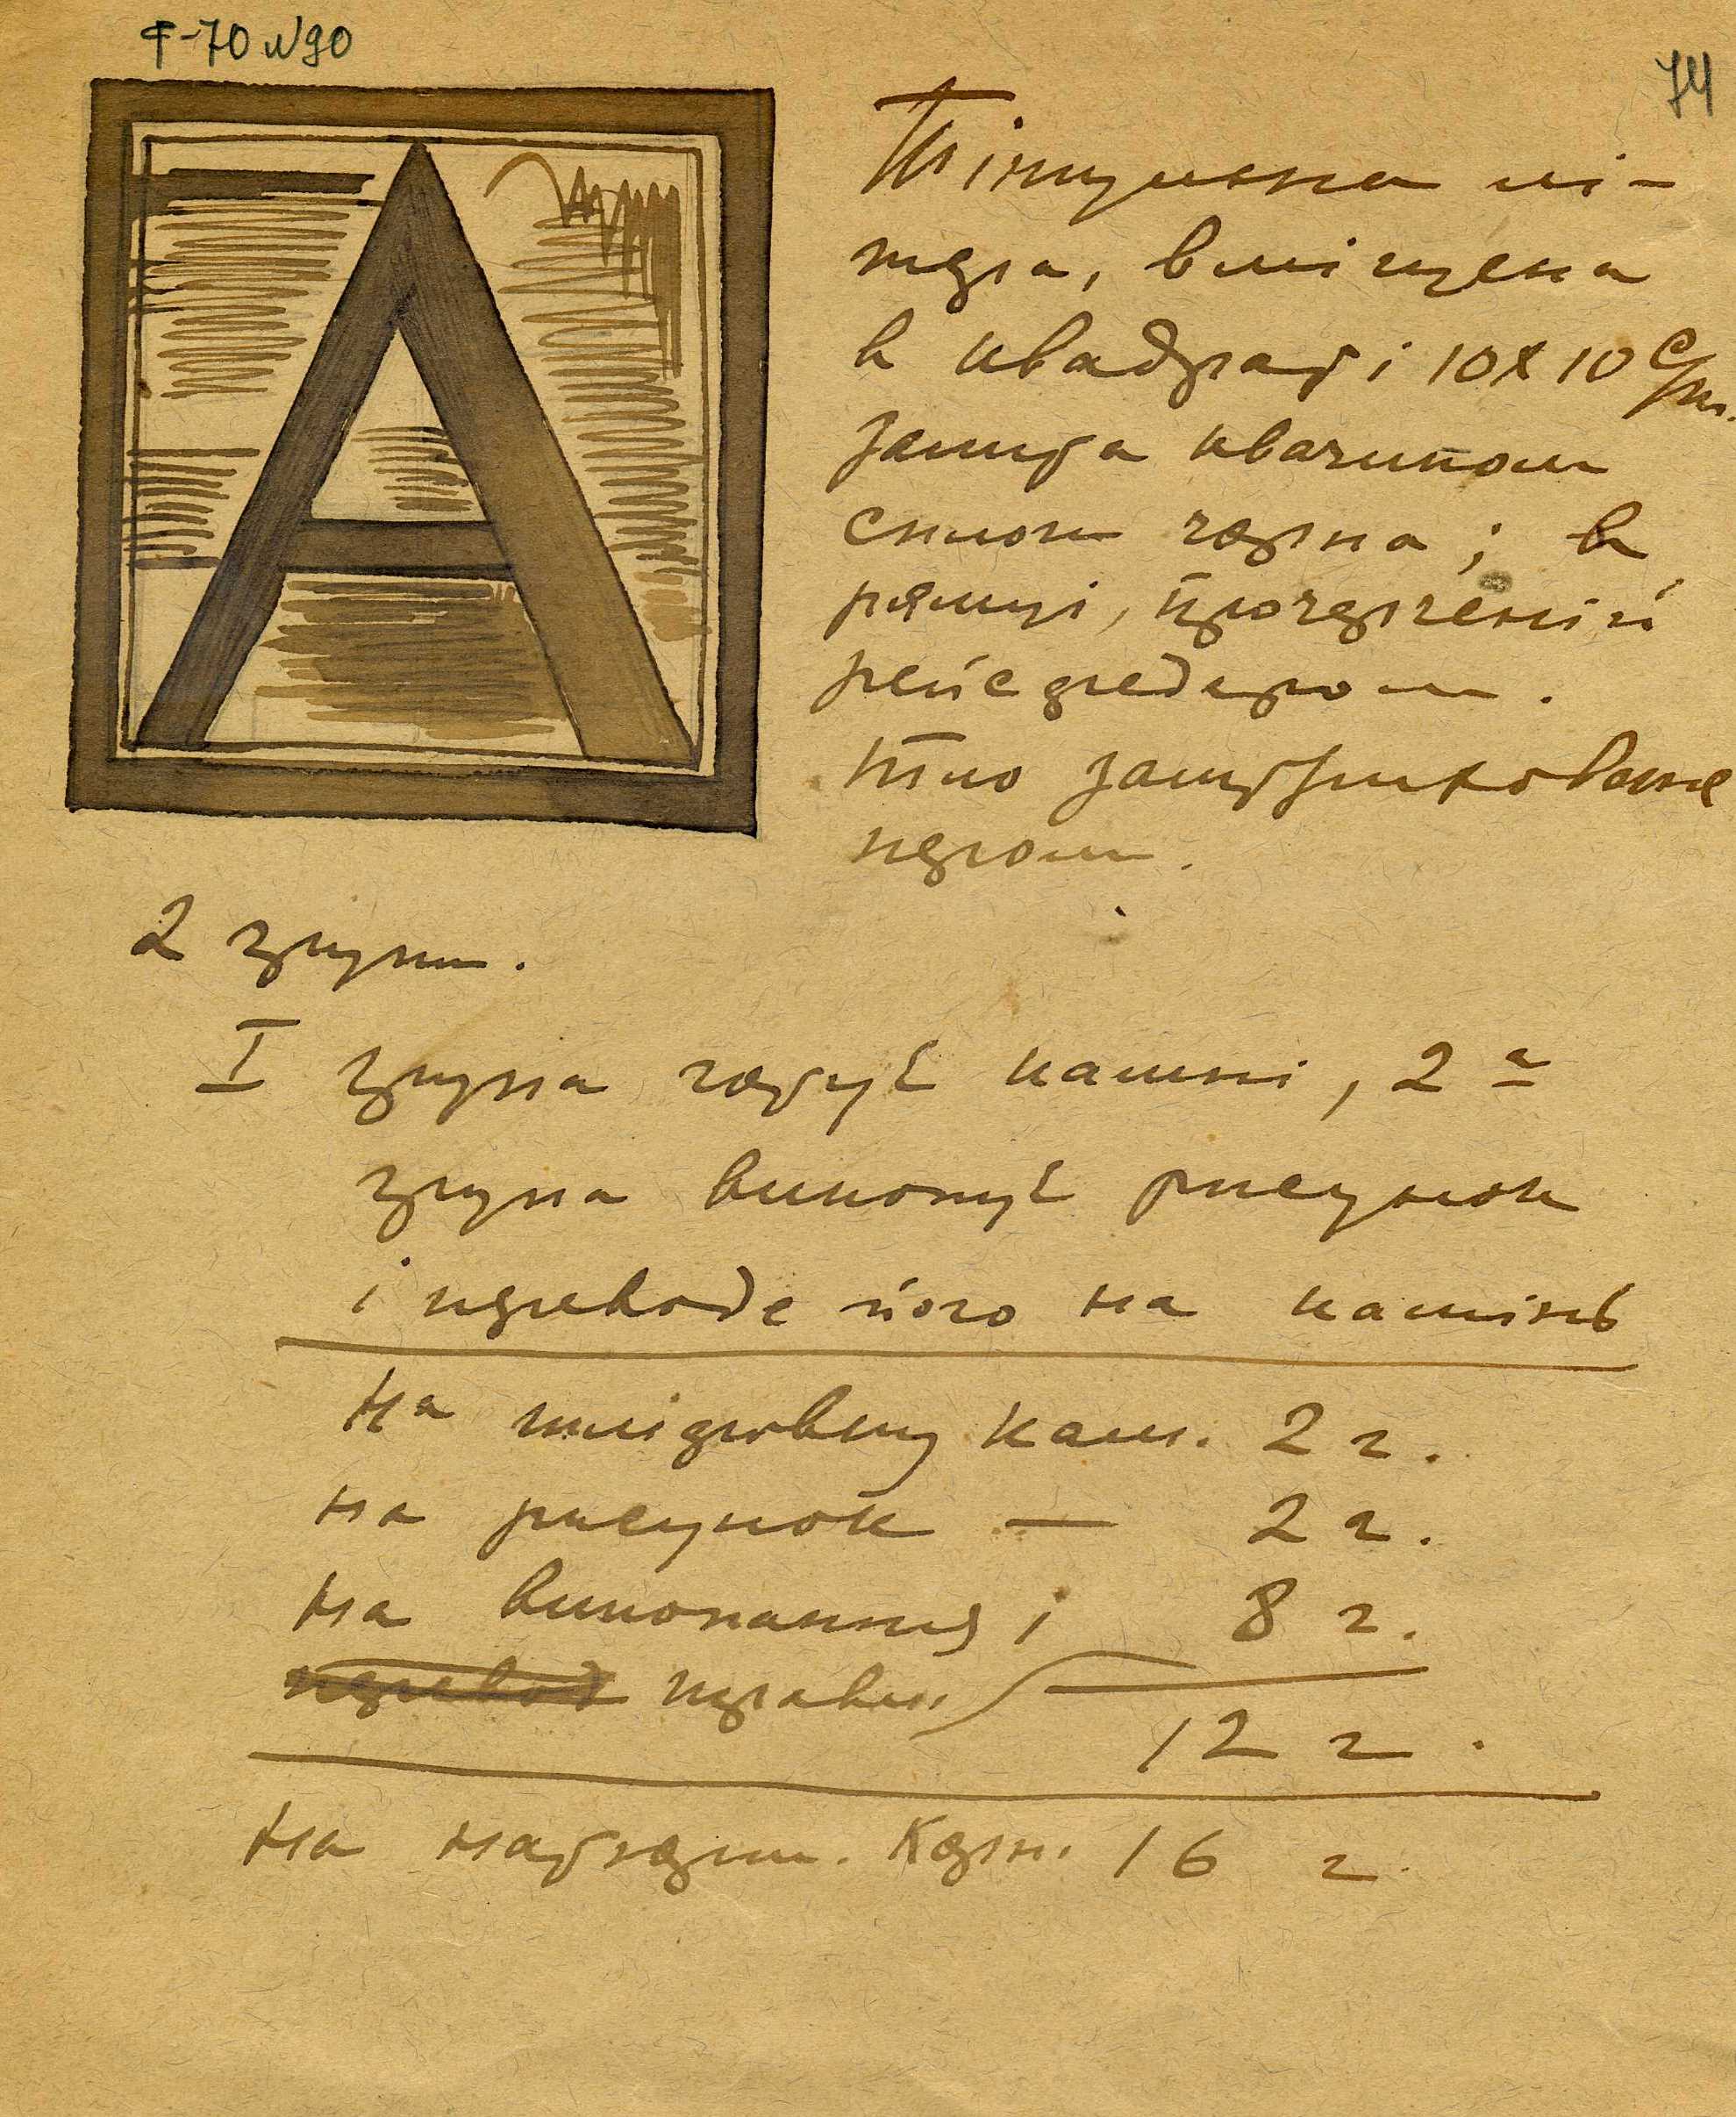 Ф-70 №90
74
А
Тінцьова лі-
тера, вміщена
в квадраті 10х10 с/м.
залита квачиком
смол чорна; в
рямці, прочерченій
рейсфедером.
Тло заштриховане
пером.
2 групи.
I група готує камні, 2а
група виконує рисунок
і переводе його на камінь
На шліфовку кам. 2 г.
на рисунок — 2 г.
на виконання і 8 г.
перевод правки
12 г.
На надгерш. Керн. 16 г.